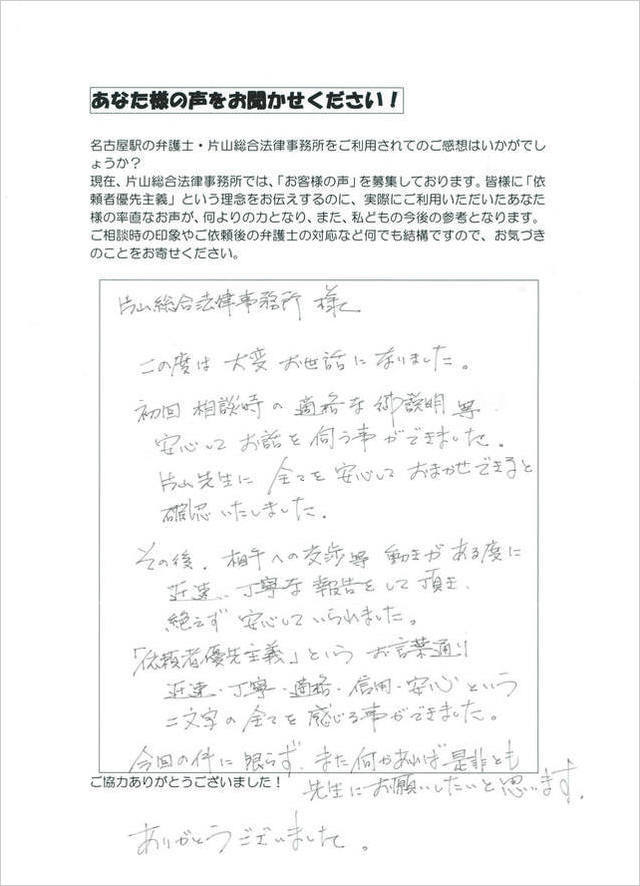 あなた様の声をお聞かせください！
名古屋駅の弁護士・片山総合法律事務所をご利用されてのご感想はいかがでし
ょうか？
現在、片山総合法律事務所では、「お客様の声」を募集しております。皆様に「依
頼者優先主義」という理念をお伝えするのに、実際にご利用いただいたあなた
様の率直なお声が、何よりの力となり、また、私どもの今後の参考となります。
ご相談時の印象やご依頼後の弁護士の対応など何でも結構ですので、お気づき
のことをお寄せください。
片山総合法律事務所 様
この度は 大変 お世話になりました。
初回 相談時の 適格な 御説明 等
安心して お話を 伺う事ができました。
片山先生に 全てを 安心して おまかせできると
確認いたしました。
その後、相手への交渉等 動きがある度に
迅速、丁寧な 報告をして頂き、
絶えず 安心していられました。
「依頼者優先主義」という お言葉通り
迅速・丁寧・適格・信用・安心 という
二文字の 全てを 感じる事ができました。
今回の件に 限らず、また何かあれば 是非とも
先生にお願いしたいと思います。
ご協力ありがとうございました！
ありがとうございました。